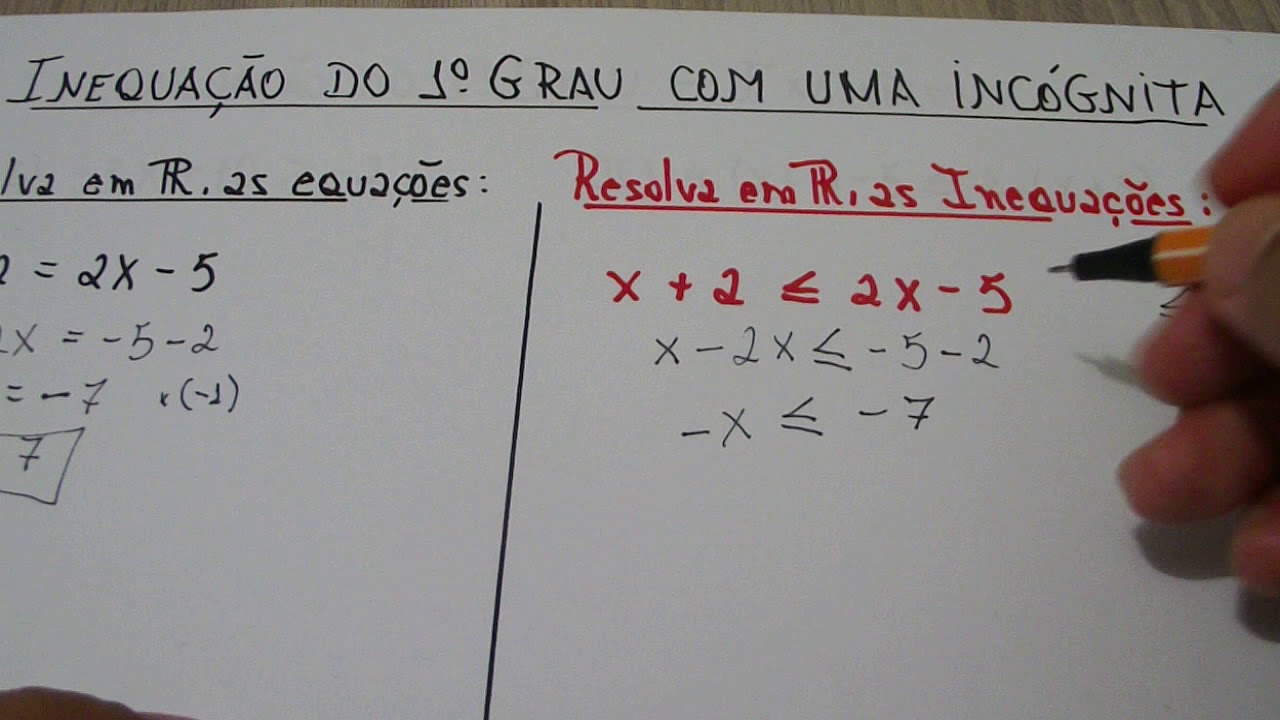 INEQUAÇÃO DO 1º GRAU COM UMA INCÓGNITA
lva em ℝ, as equações:
2 = 2x - 5
2x = -5-2
= -7 ·(-1)
7
Resolva em ℝ, as Inequações:
x + 2 ≤ 2x - 5
x - 2x ≤ -5-2
-x ≤ -7
≤